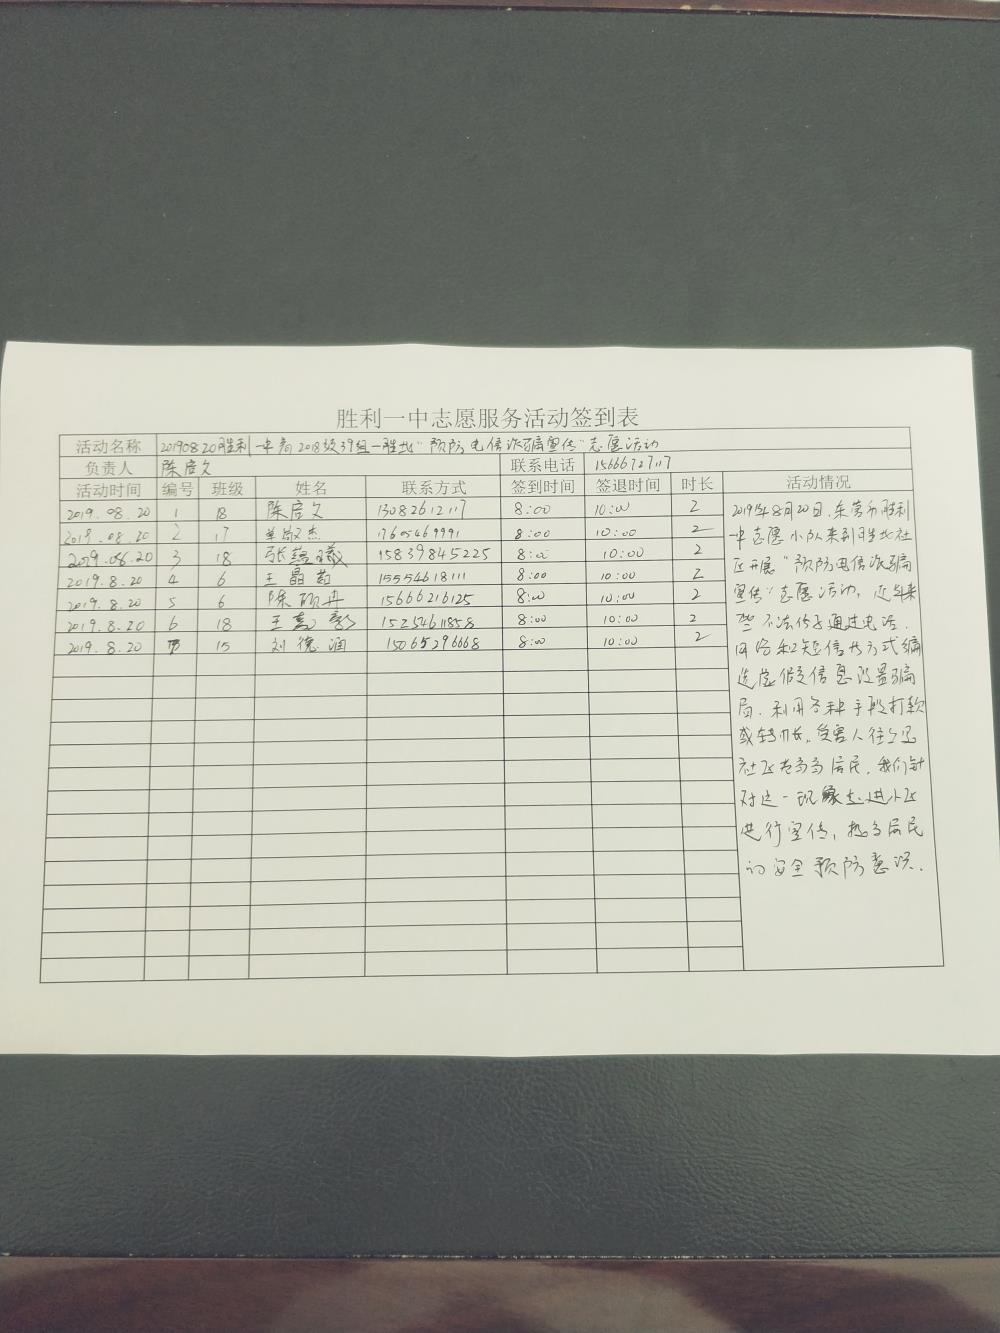 胜利一中志愿服务活动签到表
活动名称 20190820胜利一中高2018级39组一胜北"预防电信诈骗宣传"志愿活动
负责人 陈启文 联系电话 15666727117
活动时间 编号 班级 姓名 联系方式 签到时间 签退时间 时长 活动情况
2019.08.20 1 18 陈启文 13082612117 8:00 10:00 2
2019.08.20 2 17 单敬杰 17605469991 8:00 10:00 2
2019.08.20 3 18 张 15839845225 8:00 10:00 2
2019.8.20 4 6 王晶茹 15554618111 8:00 10:00 2
2019.8.20 5 6 陈硕冉 15666216125 8:00 10:00 2
2019.8.20 6 18 王 15254611858 8:00 10:00 2
2019.8.20 7 15 刘德润 15065296668 8:00 10:00 2
2019年8月20日,东营市胜利
一中志愿小队来到胜北社
区开展"预防电信诈骗
宣传"志愿活动,近年来
一些不法分子通过电话、
网络和短信的方式编
造虚假信息设置骗
局,利用各种手段打款
或转帐,受害人往往是
社区老年居民,我们针
对这一现象走进小区
进行宣传,提高居民
的安全预防意识.